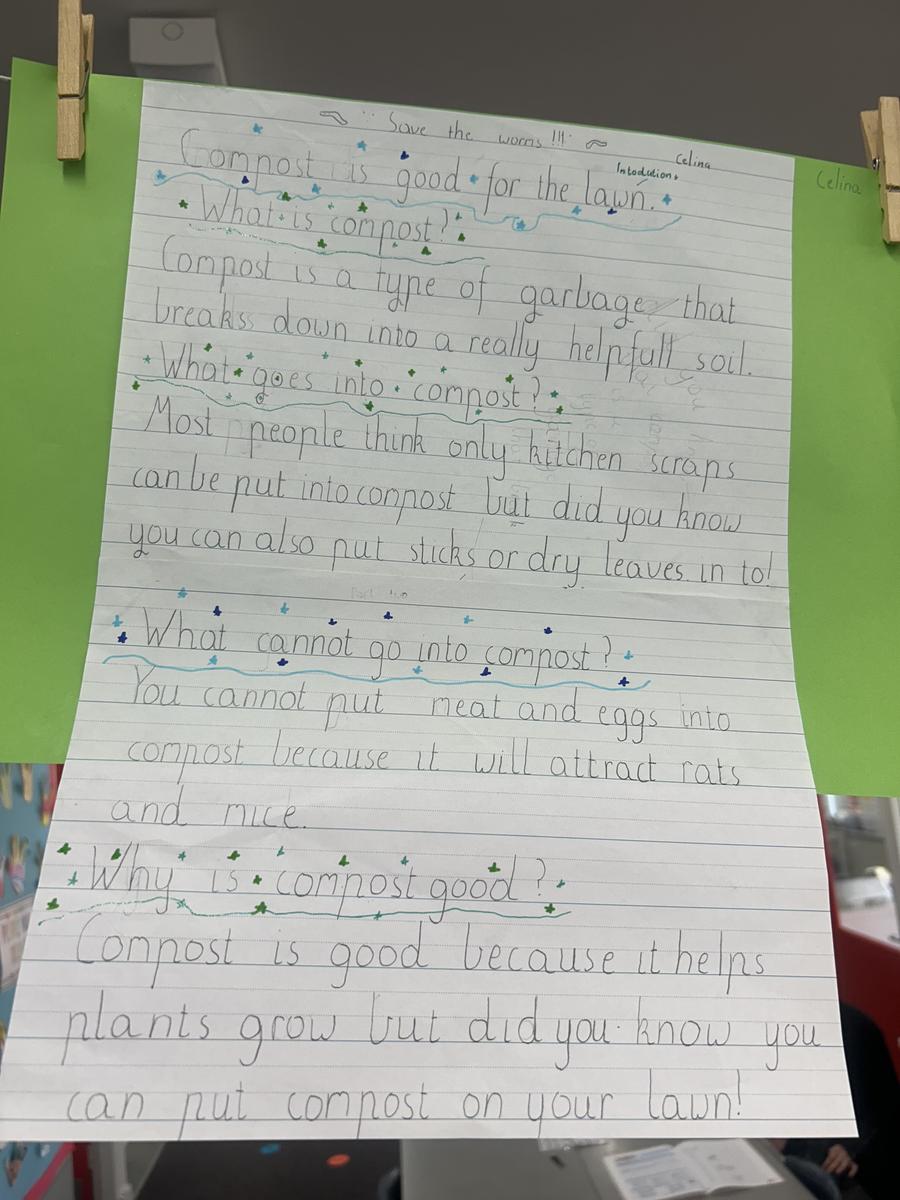 Save the worms !!!
Celina
Intodution.
Celina
Compost is good for the lawn.
What is compost?
Compost is a type of garbage that
breakss down into a really helpfull soil.
What goes into compost?
Most people think only kitchen scraps
can be put into compost but did you know
you can also put sticks or dry leaves in to!
What cannot go into compost?
You cannot put meat and eggs into
compost because it will attract rats
and mice.
Why is compost good?
Compost is good because it helps
plants grow but did you know you
can put compost on your lawn!